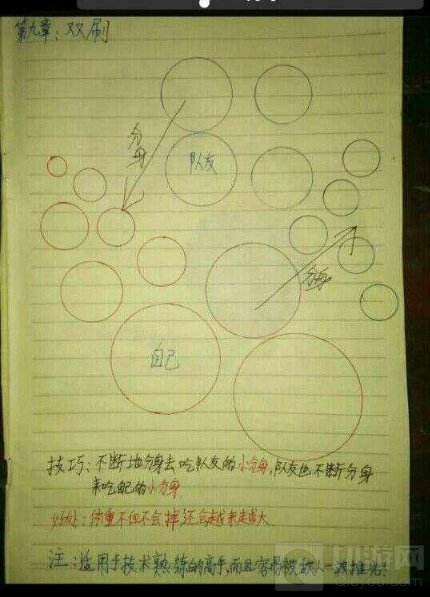 第九章：双刷
分身
队友
分身
自己
技巧：不断地分身去吃队友的小分身，队友也不断分身
来吃自己的小分身
好处：体重不但不会掉还会越来越大
注：适用于技术熟练的高手，而且容易被敌人一波推光
叩游网